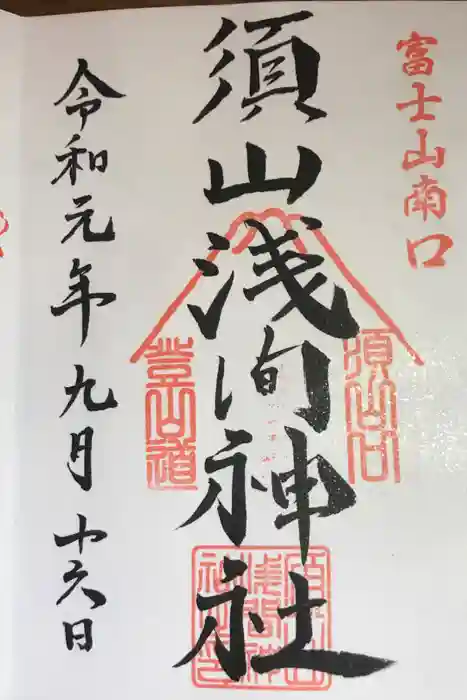 富士山南口
須山口
須山浅间神社
登山道
須山浅間神社印
令和元年九月十六日